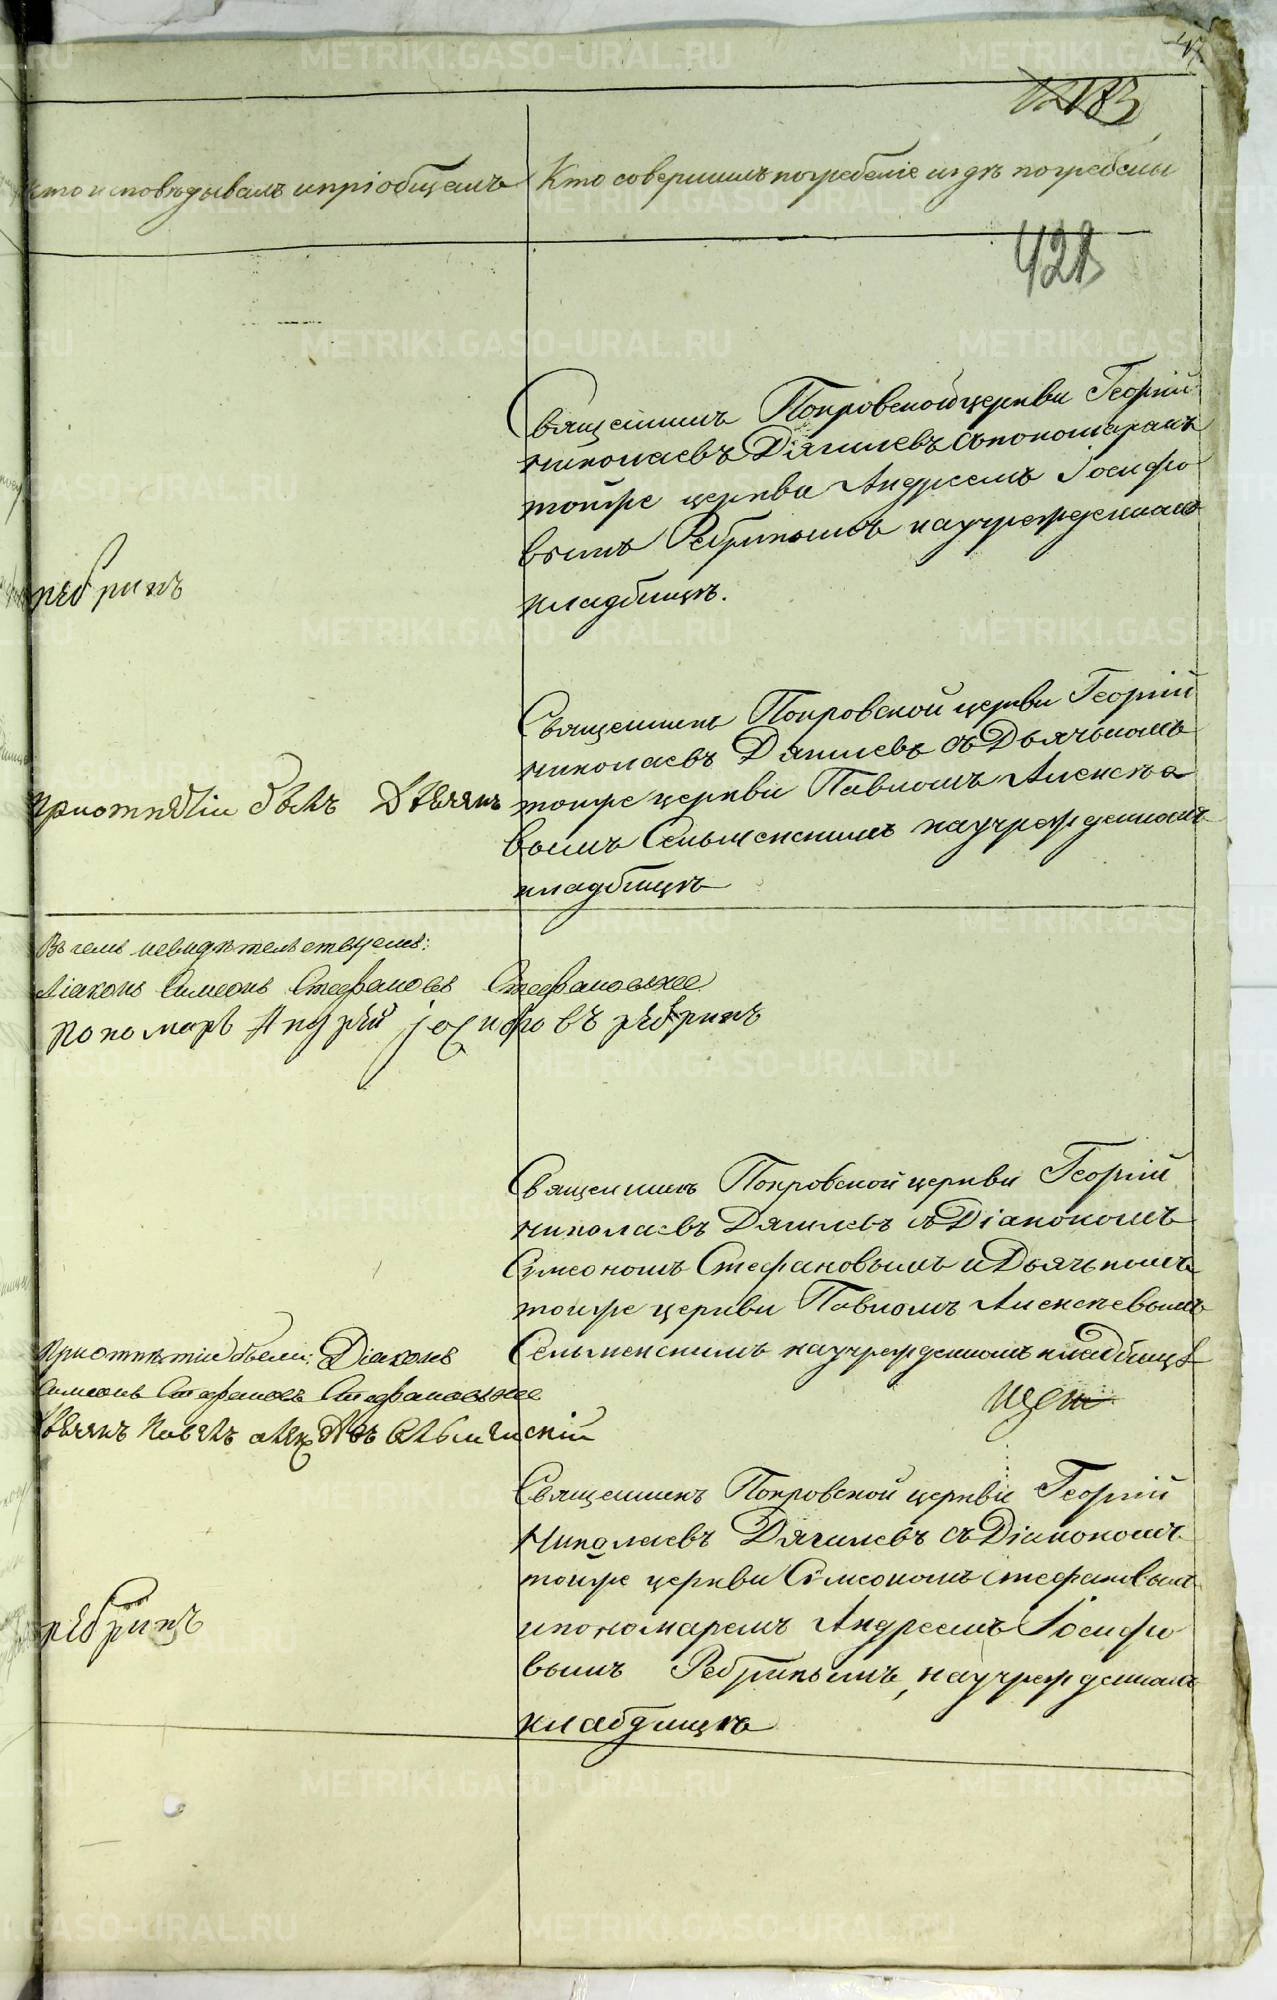 Кто исповѣдывалъ и пріобщалъ
Кто совершилъ погребеніе и гдѣ погребены
183
421
Священникъ Покровской церкви Георгій
Николаевъ Дягилевъ съ пономаремъ
тойже церкви Андреемъ Іосифо
вымъ Ребринымъ на учрежденномъ
кладбищѣ.
рѣбринъ
Священникъ Покровской церкви Георгій
Николаевъ Дягилевъ съ Дьячькомъ
тойже церкви Павломъ Алексѣе
вымъ Сельменскимъ на учрежденномъ
кладбищѣ
при отпѣтіи былъ дьячкъ
Въ чемъ и свидѣтельствуемъ:
Діаконъ Симеонъ Стефановъ Стефановыхъ
Пономарь Андрѣй іосифовъ рѣбринъ
Священникъ Покровской церкви Георгій
Николаевъ Дягилевъ съ Діакономъ
Симеономъ Стефановымъ и Дьячькомъ
тойже церкви Павломъ Алексѣевымъ
Сельменскимъ на учрежденномъ кладбищѣ
щен
При отпѣтіи были: Діаконъ
Симеонъ Стефановъ
дьячкъ Павелъ
Священникъ Покровской церкви Георгій
Николаевъ Дягилевъ съ Діакономъ
тойже церкви Симеономъ Стефановымъ
и пономаремъ Андреемъ Іосифо
вымъ Ребринымъ, на учрежденномъ
клабдищѣ
рѣбринъ
METRIKI.GASO-URAL.RU